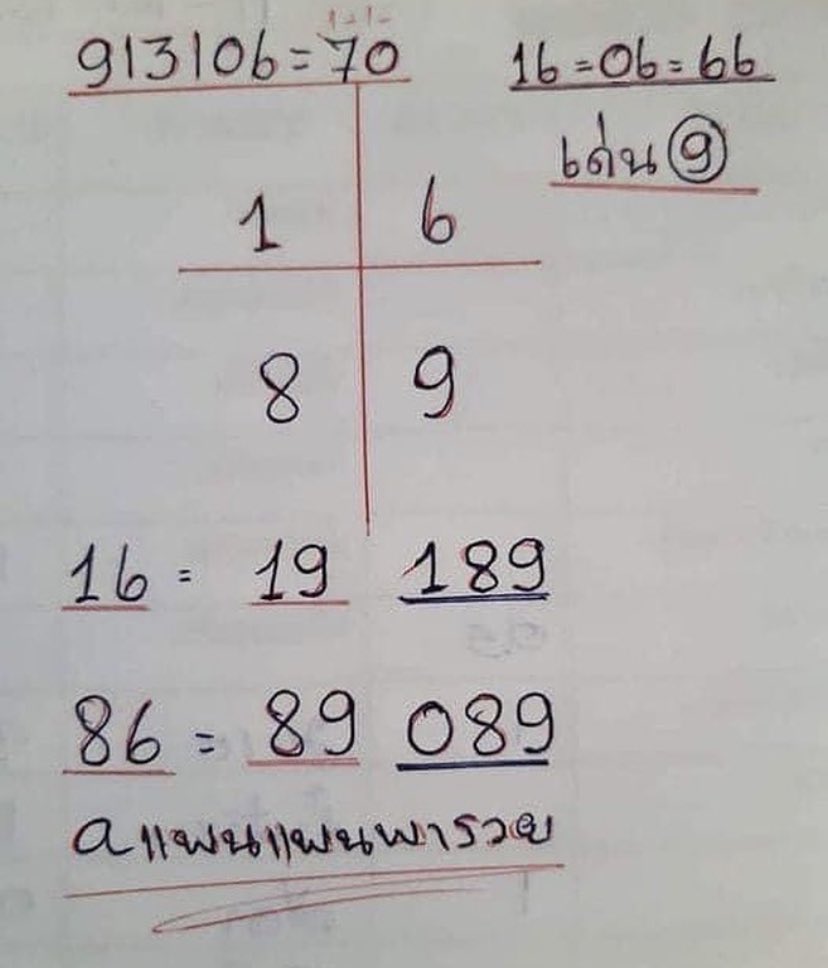 913106=70
16=06=66
เด่น 9
1 6
8 9
16 = 19 189
86 = 89 089
aแฟนแฟนพารวย